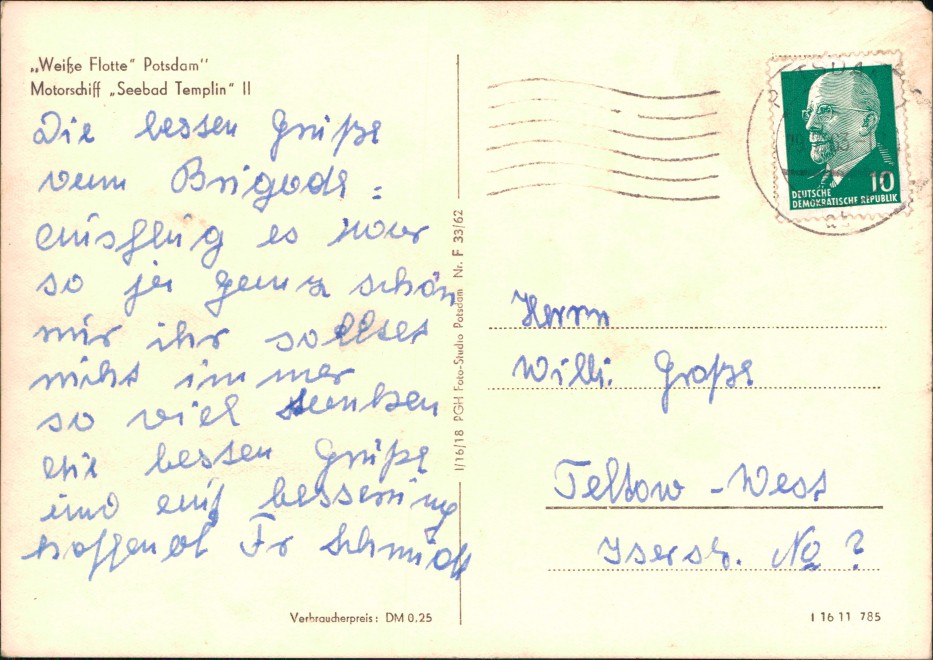 „Weiße Flotte" Potsdam"
Motorschiff „Seebad Templin" II
Die besten Grüße
vum Brigade=
ausflug es war
so ja ganz schön
nur ihr solltet
nicht immer
so viel trinken
die besten Grüße
und auf besserung
hoffend Fr Schmidt
Verbraucherpreis: DM 0.25
I/16/18 PGH Foto-Studio Potsdam Nr. F 33/62
10
DEUTSCHE
DEMOKRATISCHE REPUBLIK
Herrn
Willi. Große
Teltow-West
Iserstr. No ?
I 16 11 785